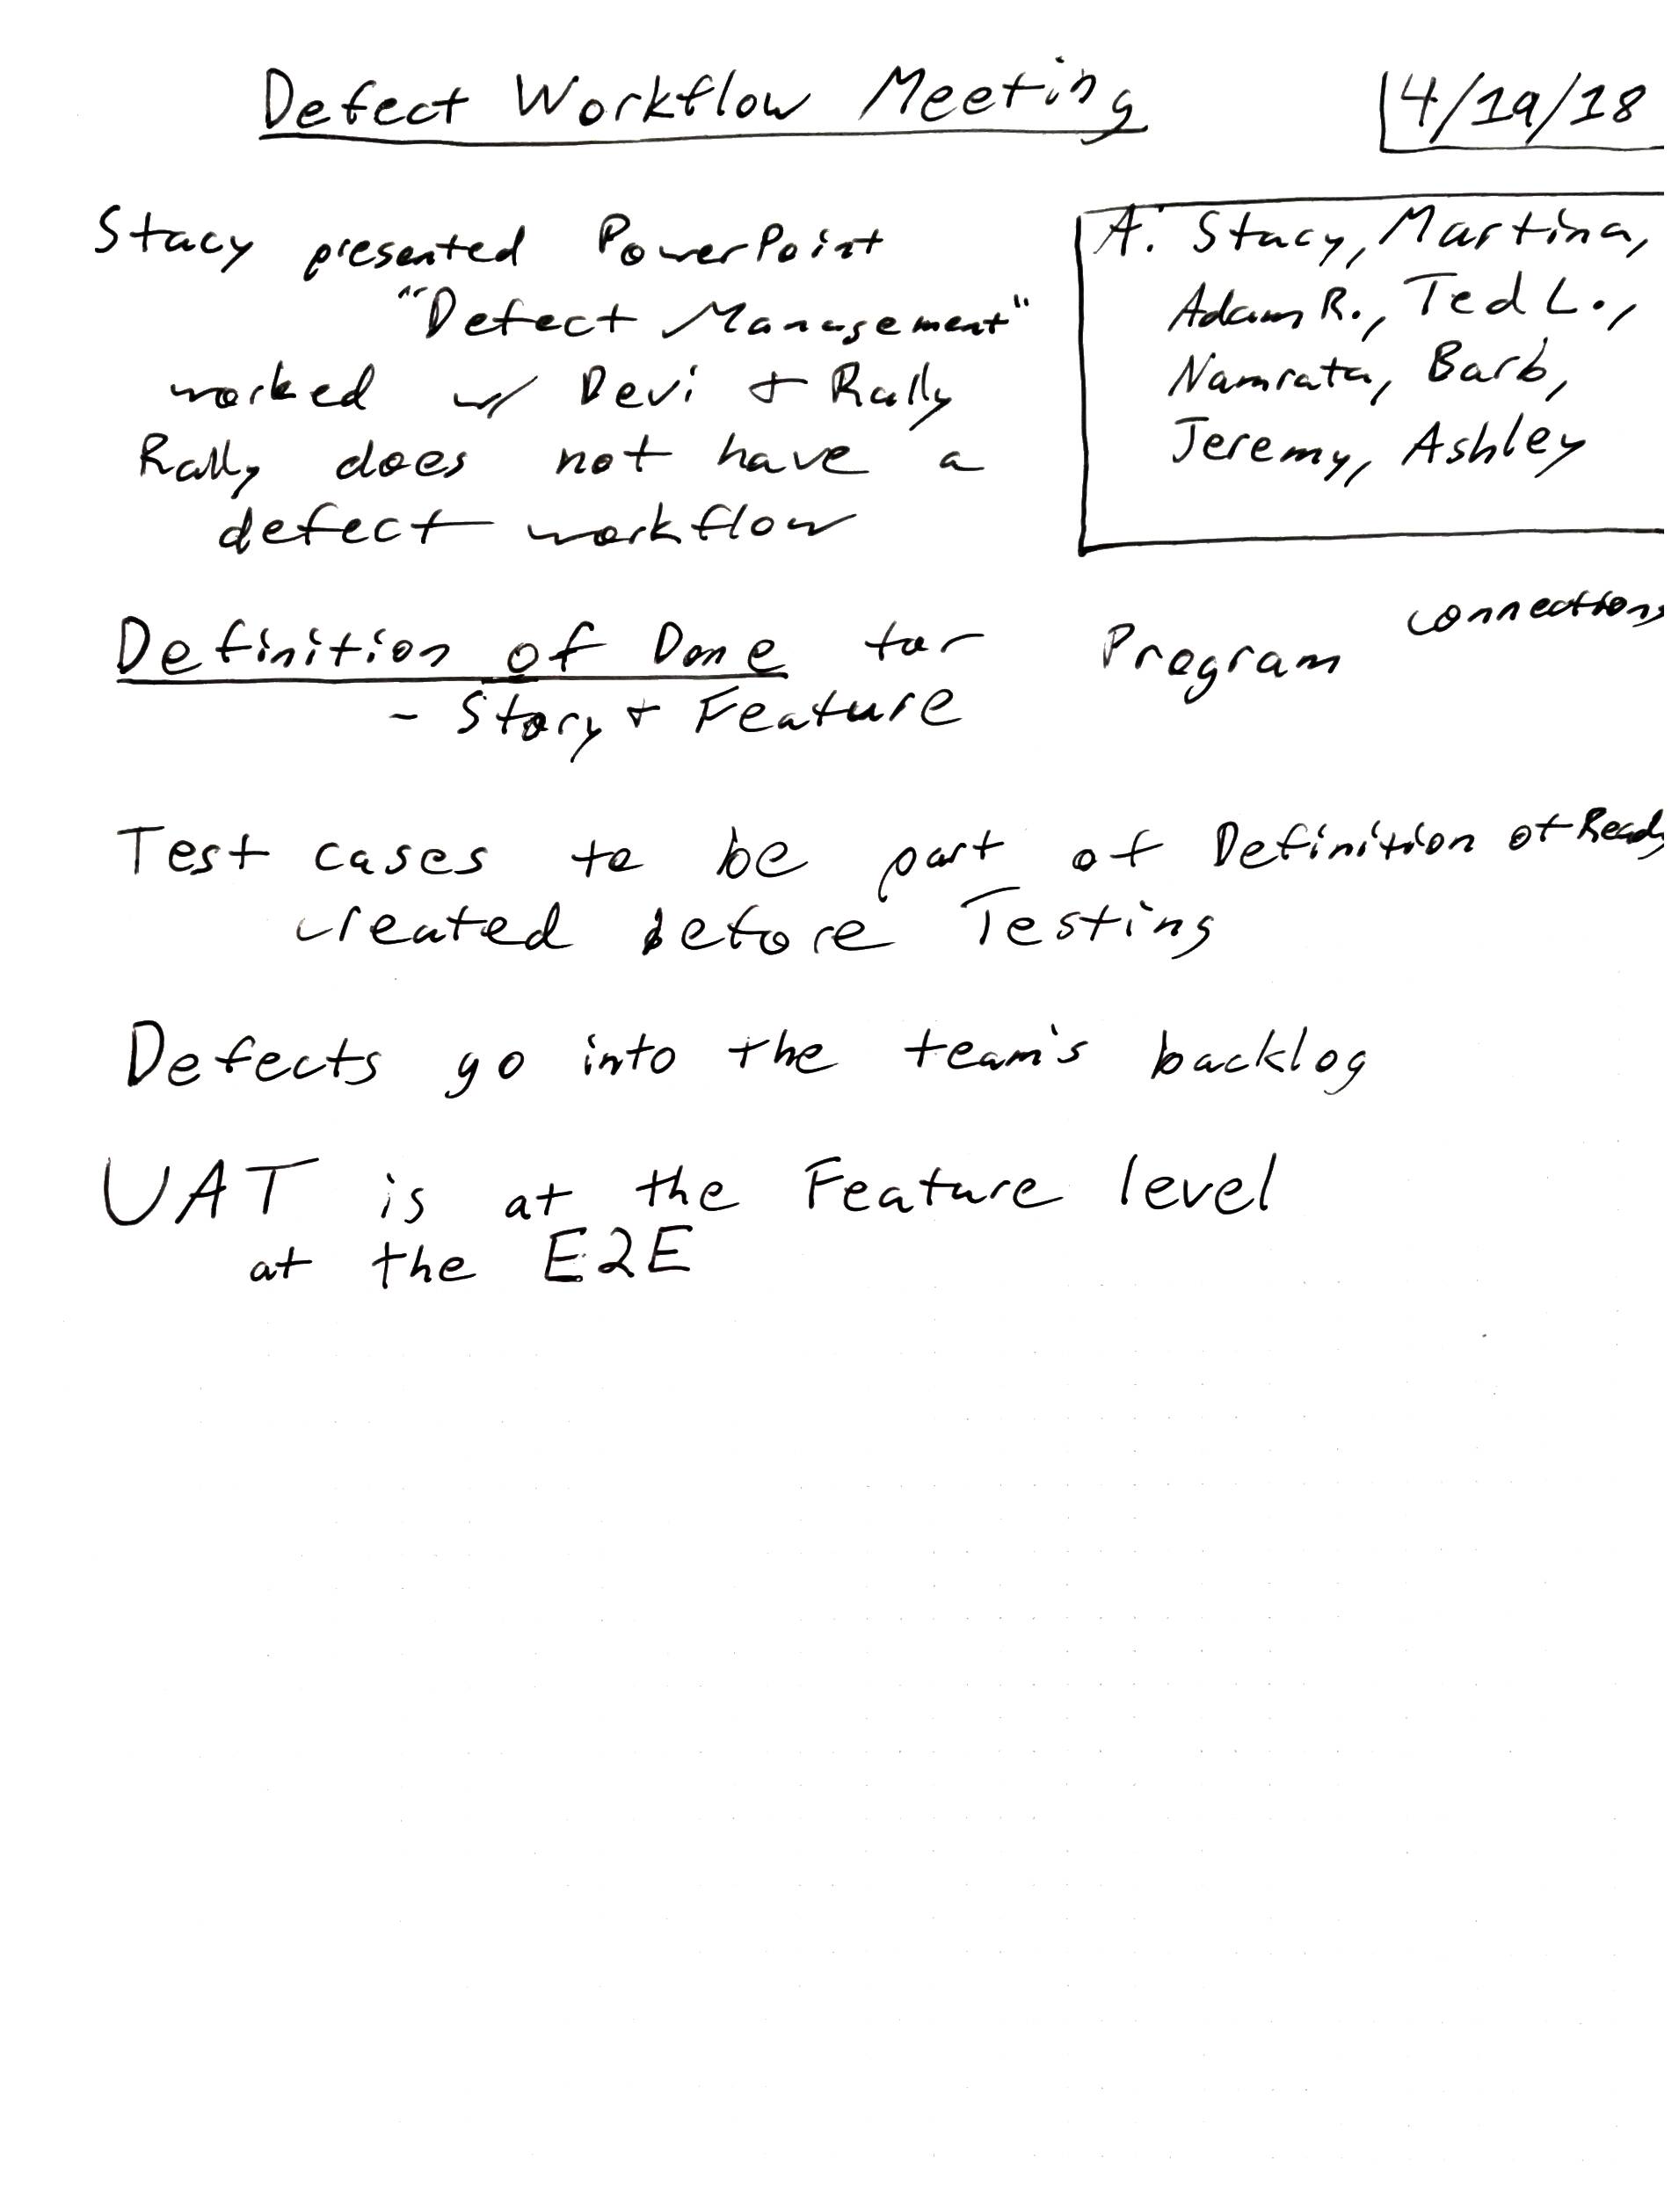 Defect Workflow Meeting
4/19/18
Stacy presented PowerPoint
"Defect Management"
worked w/ Devi + Rally
Rally does not have a
defect workflow
A: Stacy, Martina,
Adam R., Ted L.,
Namrata, Barb,
Jeremy, Ashley
Definition of Done for Program connections
- Story + Feature
Test cases to be part of Definition of Ready
created before Testing
Defects go into the team's backlog
UAT is at the Feature level
at the E2E